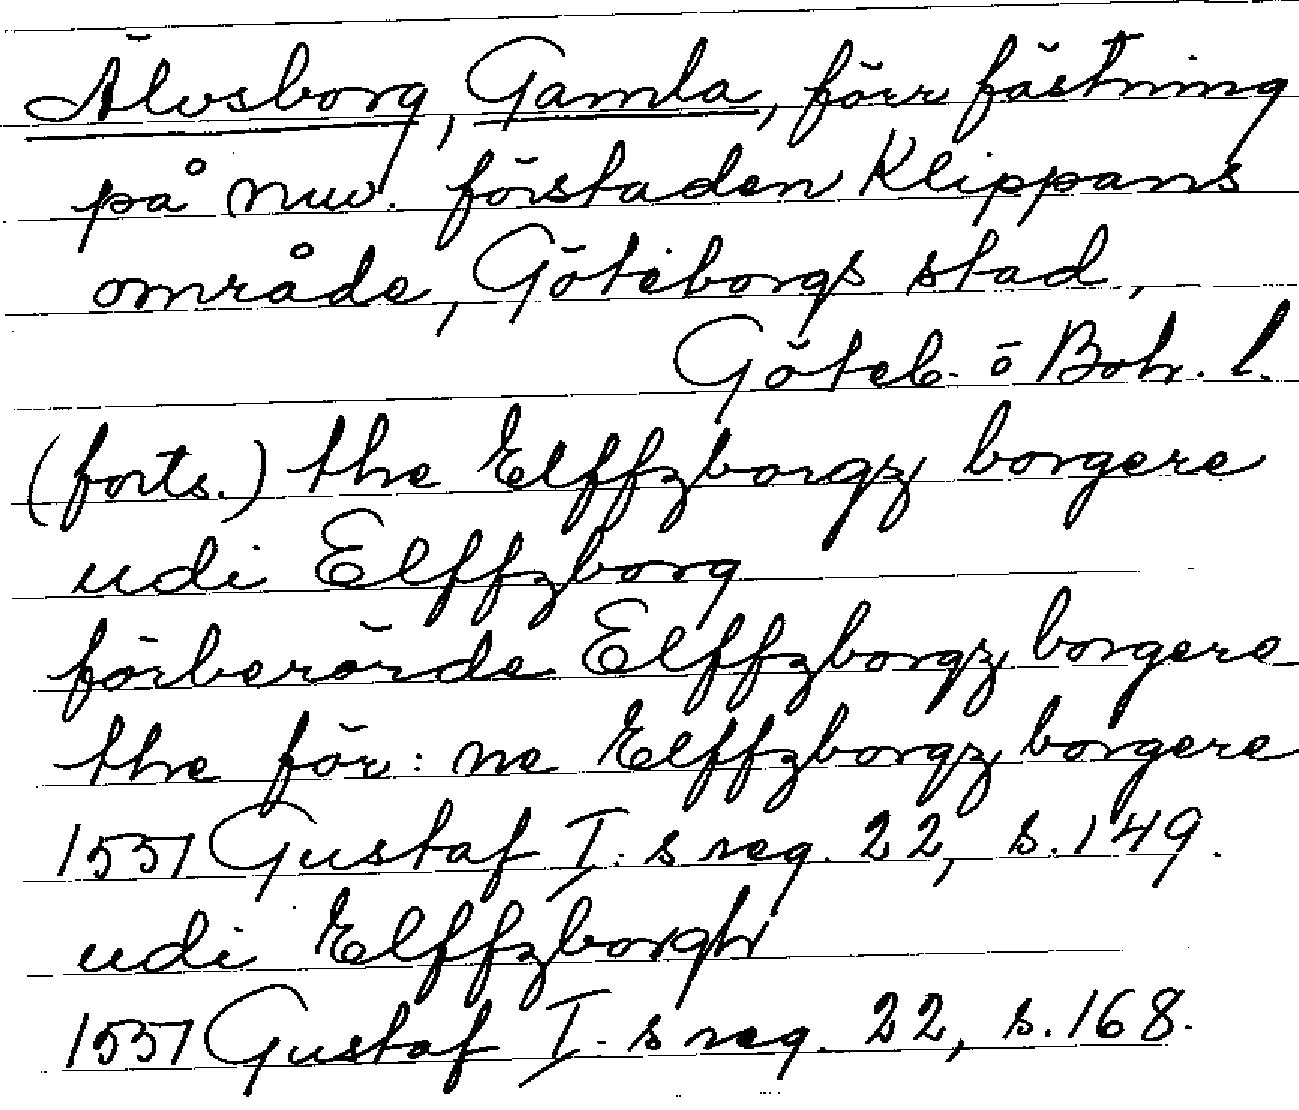 Älvsborg, Gamla, förr fästning
på nuv. förstaden Klippans
område, Göteborgs stad,
Göteb. o Boh. l.
(forts.) the Elffzborgz borgere
udi Elffzborg
förberörde Elffzborgz borgere
the för: ne Elffzborgz borgere
1551 Gustaf I. s reg. 22, s. 149.
udi Elffzborgh
1551 Gustaf I. s reg. 22, s. 168.